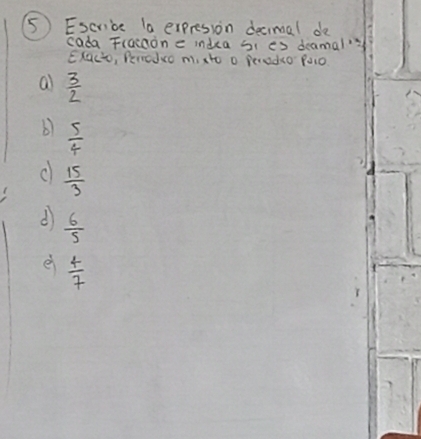 5) Escribe la expresión decimal de
cada Fracción e indica si es decimal:
Exacto, Periodico mixto o periodico puro.
a) 3/2
b) 5/4
c) 15/3
d) 6/5
e) 4/7